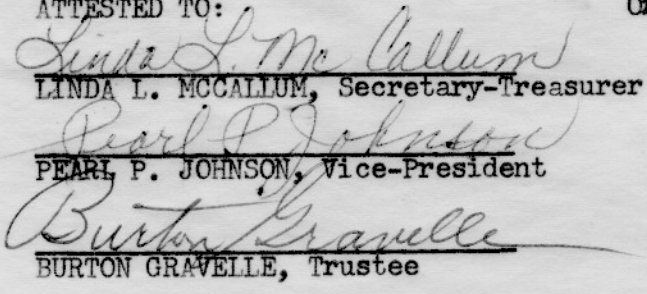 ATTESTED TO:
Linda L. McCallum
LINDA L. MCCALLUM, Secretary-Treasurer
Pearl P Johnson
PEARL P. JOHNSON, Vice-President
Burton Gravelle
BURTON GRAVELLE, Trustee